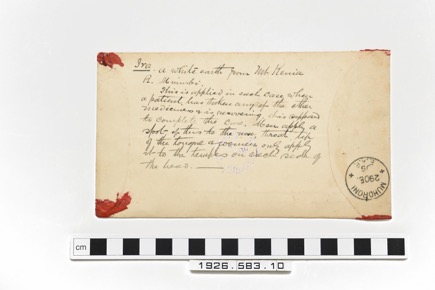 Ira. A white earth from Mt. Kenia
R.
This is applied in each case, when
a patient, has taken any of the other
medicines & is recovering, this
to complete the cure. Men apply a
spot of this to the nose, throat, tip
of the tongue & women only apply
it to the temples on each side of
the head.
MUHORONI
2908
cm
1926.583.10